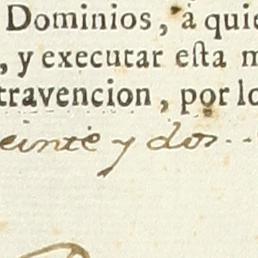 Dominios, à quie
, y executar eſta m
travencion, por lo
einte y dos...